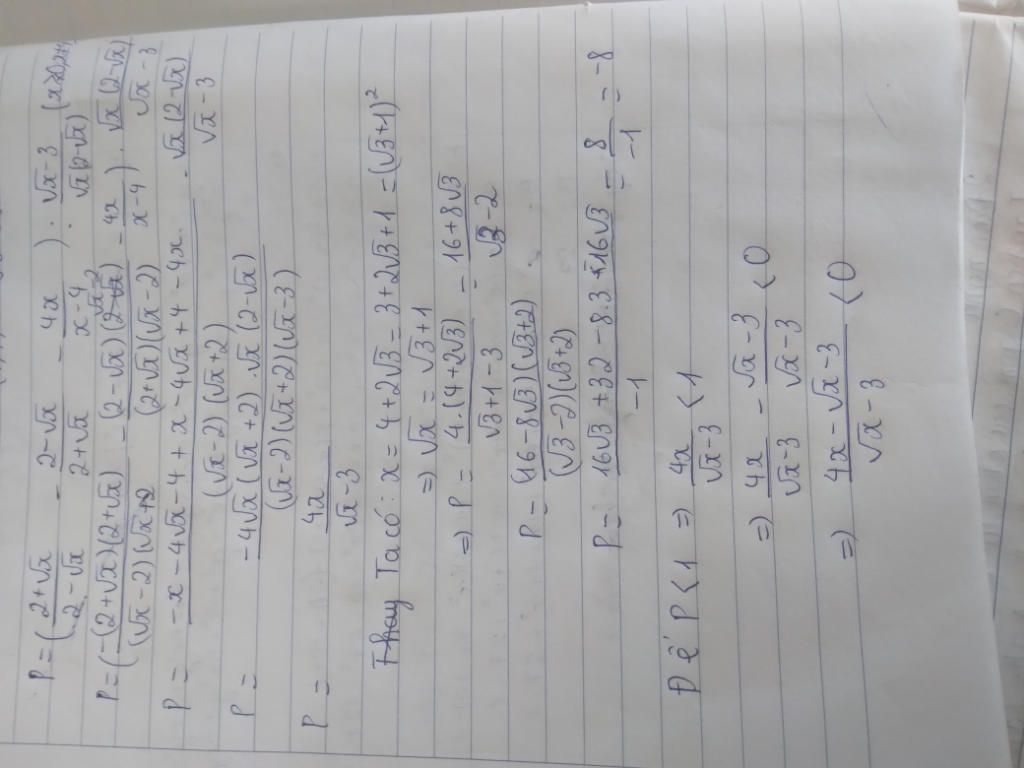 P = ( \frac{2+\sqrt{x}}{2-\sqrt{x}} - \frac{2-\sqrt{x}}{2+\sqrt{x}} - \frac{4x}{x-4} ) . \frac{\sqrt{x}-3}{\sqrt{x}(2-\sqrt{x})}
P = ( \frac{-(2+\sqrt{x})(2+\sqrt{x})}{(\sqrt{x}-2)(\sqrt{x}+2)} - \frac{(2-\sqrt{x})(2-\sqrt{x})}{(2+\sqrt{x})(\sqrt{x}-2)} - \frac{4x}{x-4} ) . \frac{\sqrt{x}(2-\sqrt{x})}{\sqrt{x}-3}
P = \frac{-x-4\sqrt{x}-4+x-4\sqrt{x}+4-4x}{(\sqrt{x}-2)(\sqrt{x}+2)} . \frac{\sqrt{x}(2-\sqrt{x})}{\sqrt{x}-3}
P = \frac{-4\sqrt{x}(\sqrt{x}+2)\sqrt{x}(2-\sqrt{x})}{(\sqrt{x}-2)(\sqrt{x}+2)(\sqrt{x}-3)}
P = \frac{4x}{\sqrt{x}-3}
Ta có: x = 4+2\sqrt{3} = 3+2\sqrt{3}+1 = (\sqrt{3}+1)^2
=> \sqrt{x} = \sqrt{3}+1
=> P = \frac{4.(4+2\sqrt{3})}{\sqrt{3}+1-3} = \frac{16+8\sqrt{3}}{\sqrt{3}-2}
P = \frac{(16-8\sqrt{3})(\sqrt{3}+2)}{(\sqrt{3}-2)(\sqrt{3}+2)}
P = \frac{16\sqrt{3}+32-8.3-16\sqrt{3}}{-1} = \frac{8}{-1} = -8
Để P < 1 => \frac{4x}{\sqrt{x}-3} < 1
=> \frac{4x}{\sqrt{x}-3} - \frac{\sqrt{x}-3}{\sqrt{x}-3} < 0
=> \frac{4x-\sqrt{x}-3}{\sqrt{x}-3} < 0